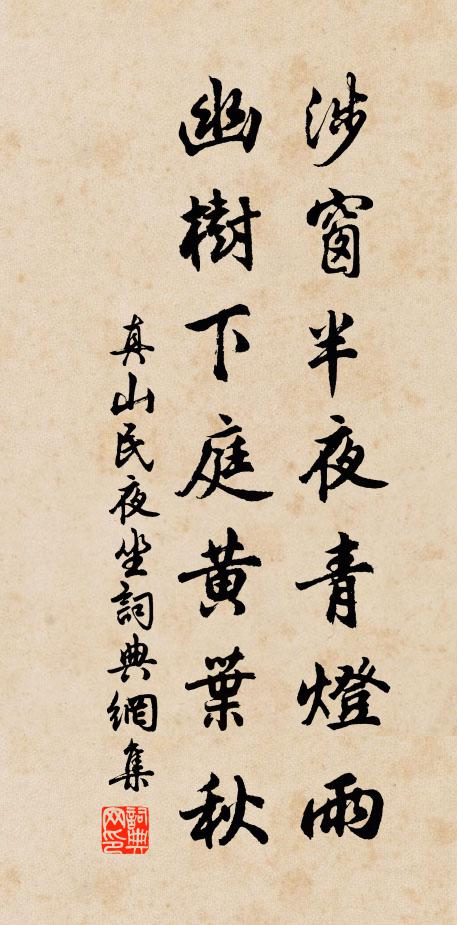 涉窗半夜青燈雨
幽樹下庭黃葉秋
真山民夜坐詞典網集
詞典网印